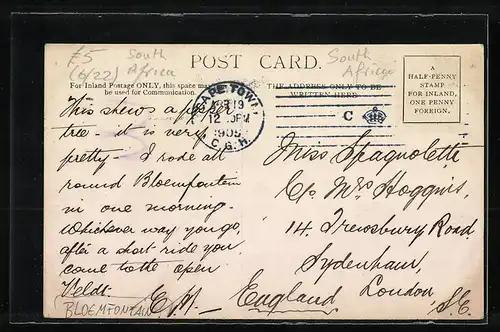 £5
(6/22)
South
Africa
POST CARD.
South
Africa
For Inland Postage ONLY, this space may
be used for Communication.
THE ADDRESS ONLY TO BE
WRITTEN HERE.
A
HALF-PENNY
STAMP
FOR INLAND,
ONE PENNY
FOREIGN.
CAPE TOWN
12 PM
1905
C.G.H.
C
This shews a
tree - it is very
pretty - I rode all
round Bloemfontein
in one morning.
Whichever way you go,
after a short ride you
come to the open
Veldt. E.M.
(BLOEMFONTAIN)
Miss Spagnoletti
C/o Mrs Hoggins,
14. Trewsbury Road
Sydenham,
London,
England S.E.